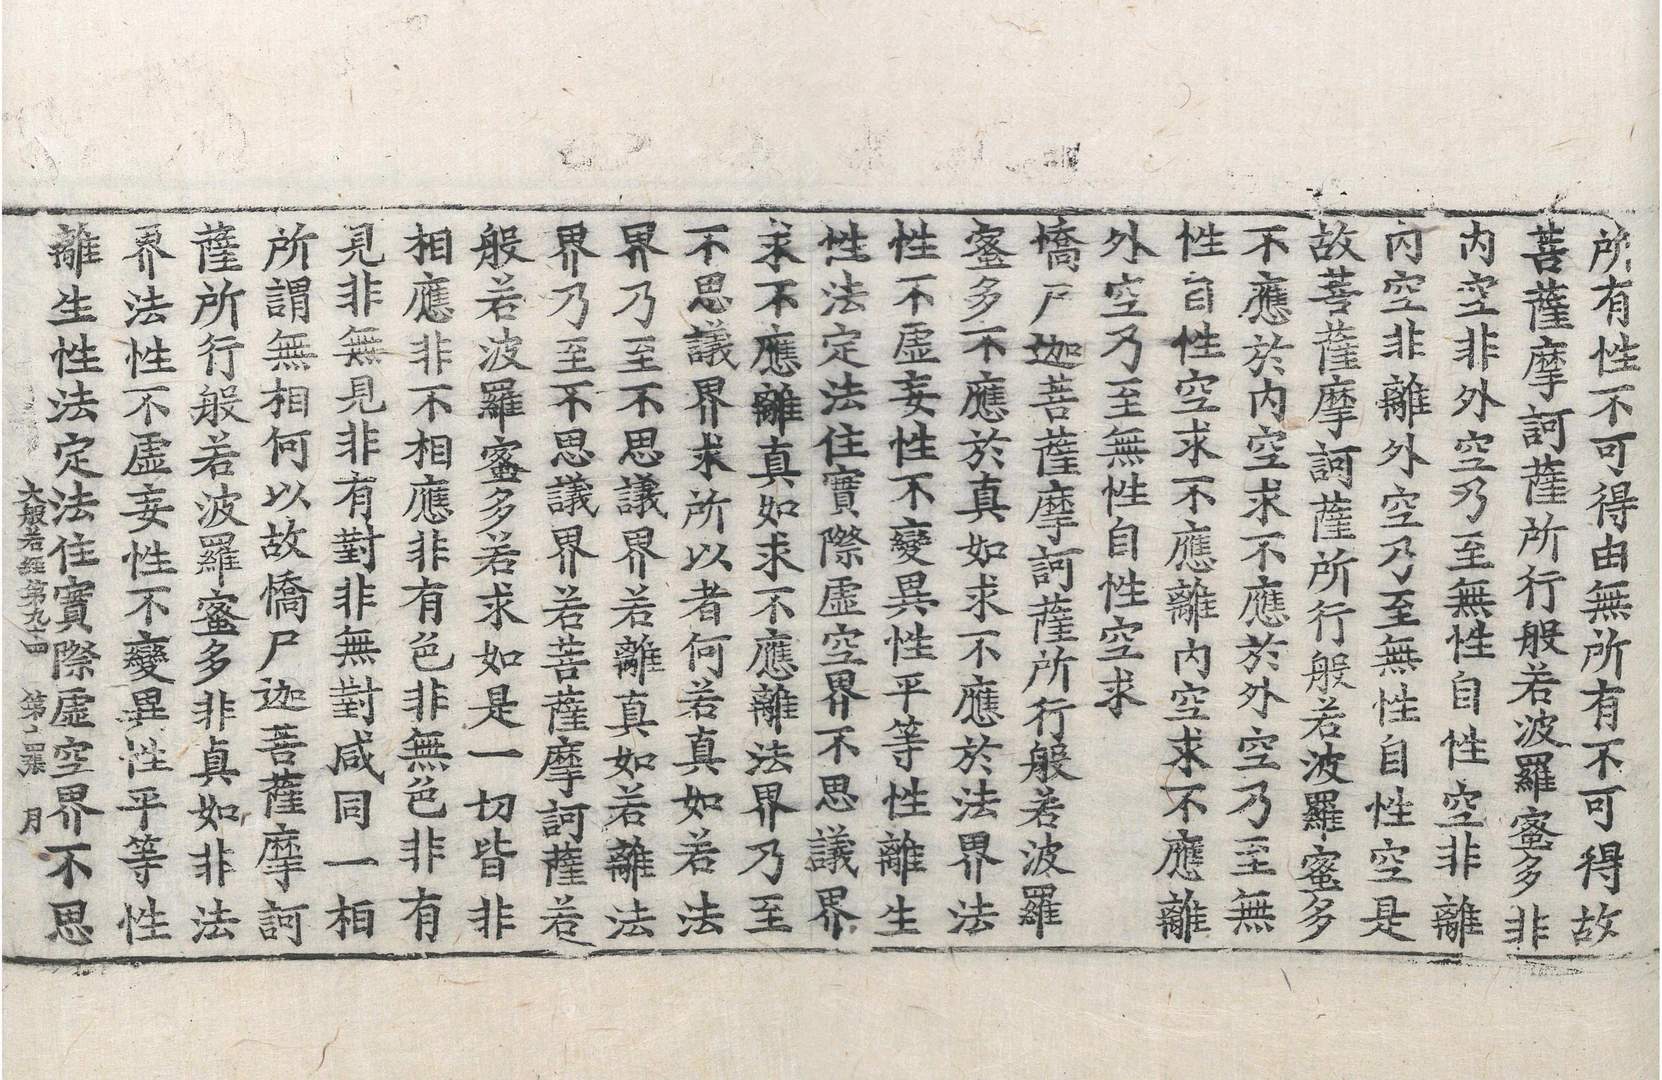 所有性不可得由無所有不可得故
菩薩摩訶薩所行般若波羅蜜多非
内空非外空乃至無性自性空非離
内空非離外空乃至無性自性空是
故菩薩摩訶薩所行般若波羅蜜多
不應於内空求不應於外空乃至無
性自性空求不應離内空求不應離
外空乃至無性自性空求
憍尸迦菩薩摩訶薩所行般若波羅
蜜多不應於真如求不應於法界法
性不虛妄性不變異性平等性離生
性法定法住實際虛空界不思議界
求不應離真如求不應離法界乃至
不思議界求所以者何若真如若法
界乃至不思議界若離真如若離法
界乃至不思議界若菩薩摩訶薩若
般若波羅蜜多若求如是一切皆非
相應非不相應非有色非無色非有
見非無見非有對非無對咸同一相
所謂無相何以故憍尸迦菩薩摩訶
薩所行般若波羅蜜多非真如非法
界法性不虛妄性不變異性平等性
離生性法定法住實際虛空界不思
大般若經第九十四 第十四張 月